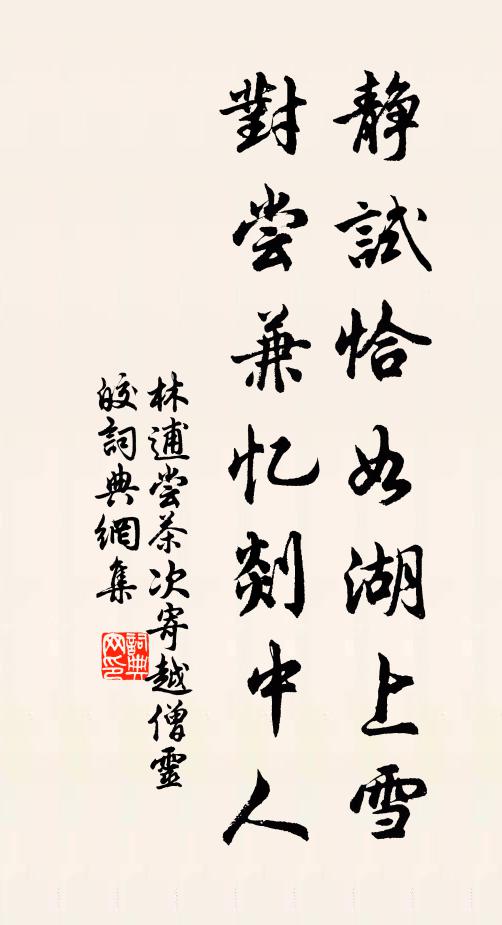 靜試恰如湖上雪
對尝兼忆剡中人
林逋尝茶次寄越僧靈
皎詞典網集
詞典
网